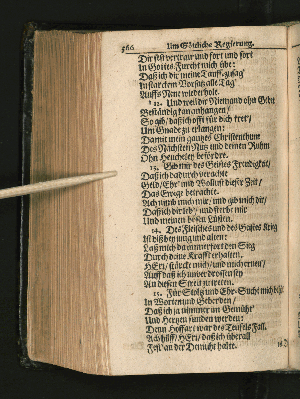 566 Um Göttliche Regierung.
Dir fest vertrau' und fort und fort
In Gottes-Furcht mich übe:
Daß ich dir meine Tauff-zusag'
In starckem Vorsatz alle Tag'
Auffs Neue wiederhole.
12. Und weil dir Niemand ohn Geist
Beständig kan anhangen/
So gib/ daß ich offt für dich tret/
Um Gnade zu erlangen:
Damit mein gantzes Christenthum
Des Nächsten Nutz und deinen Ruhm
Ohn Heucheley befördre.
13. Gib mir des Geistes Freudigkeit/
Daß ich dadurch verachte
Geld/ Ehr' und Wollust dieser Zeit/
Das Ewge betrachte.
Ach nimb mich mir/ und gib mich dir/
Daß ich dir leb'/ und sterbe mir
Und meinen bösen Lüsten.
14. Des Fleisches und des Geistes Krieg
Ist bißher
Laß mich da immer fort den Sieg
Durch deine Krafft erhalten.
HErr/ stärck mich/ und mich ernen/
Auff daß ich unverdrossen sey
An diesen Streit zu treten.
15. Für Stoltz und Ehr-Sucht mich
In Worten und Geberden/
Daß ich ja nimmer im Gemüht'
Und Hertzen funden werden:
Denn Hoffart war des Teufels Fall.
Ach hilff/ HErr/ daß ich überall
Fest an der Demuht halte.